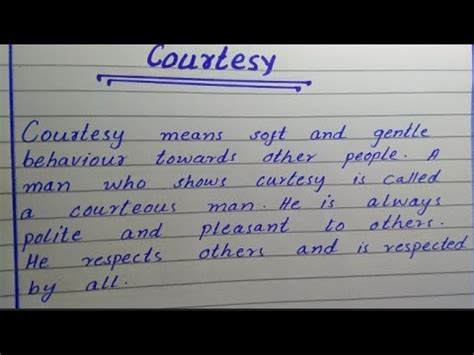 Courtesy
Courtesy means soft and gentle
behaviour towards other people. A
man who shows curtesy is called
a courteous man. He is always
polite and pleasant to others.
He respects others and is respected
by all.